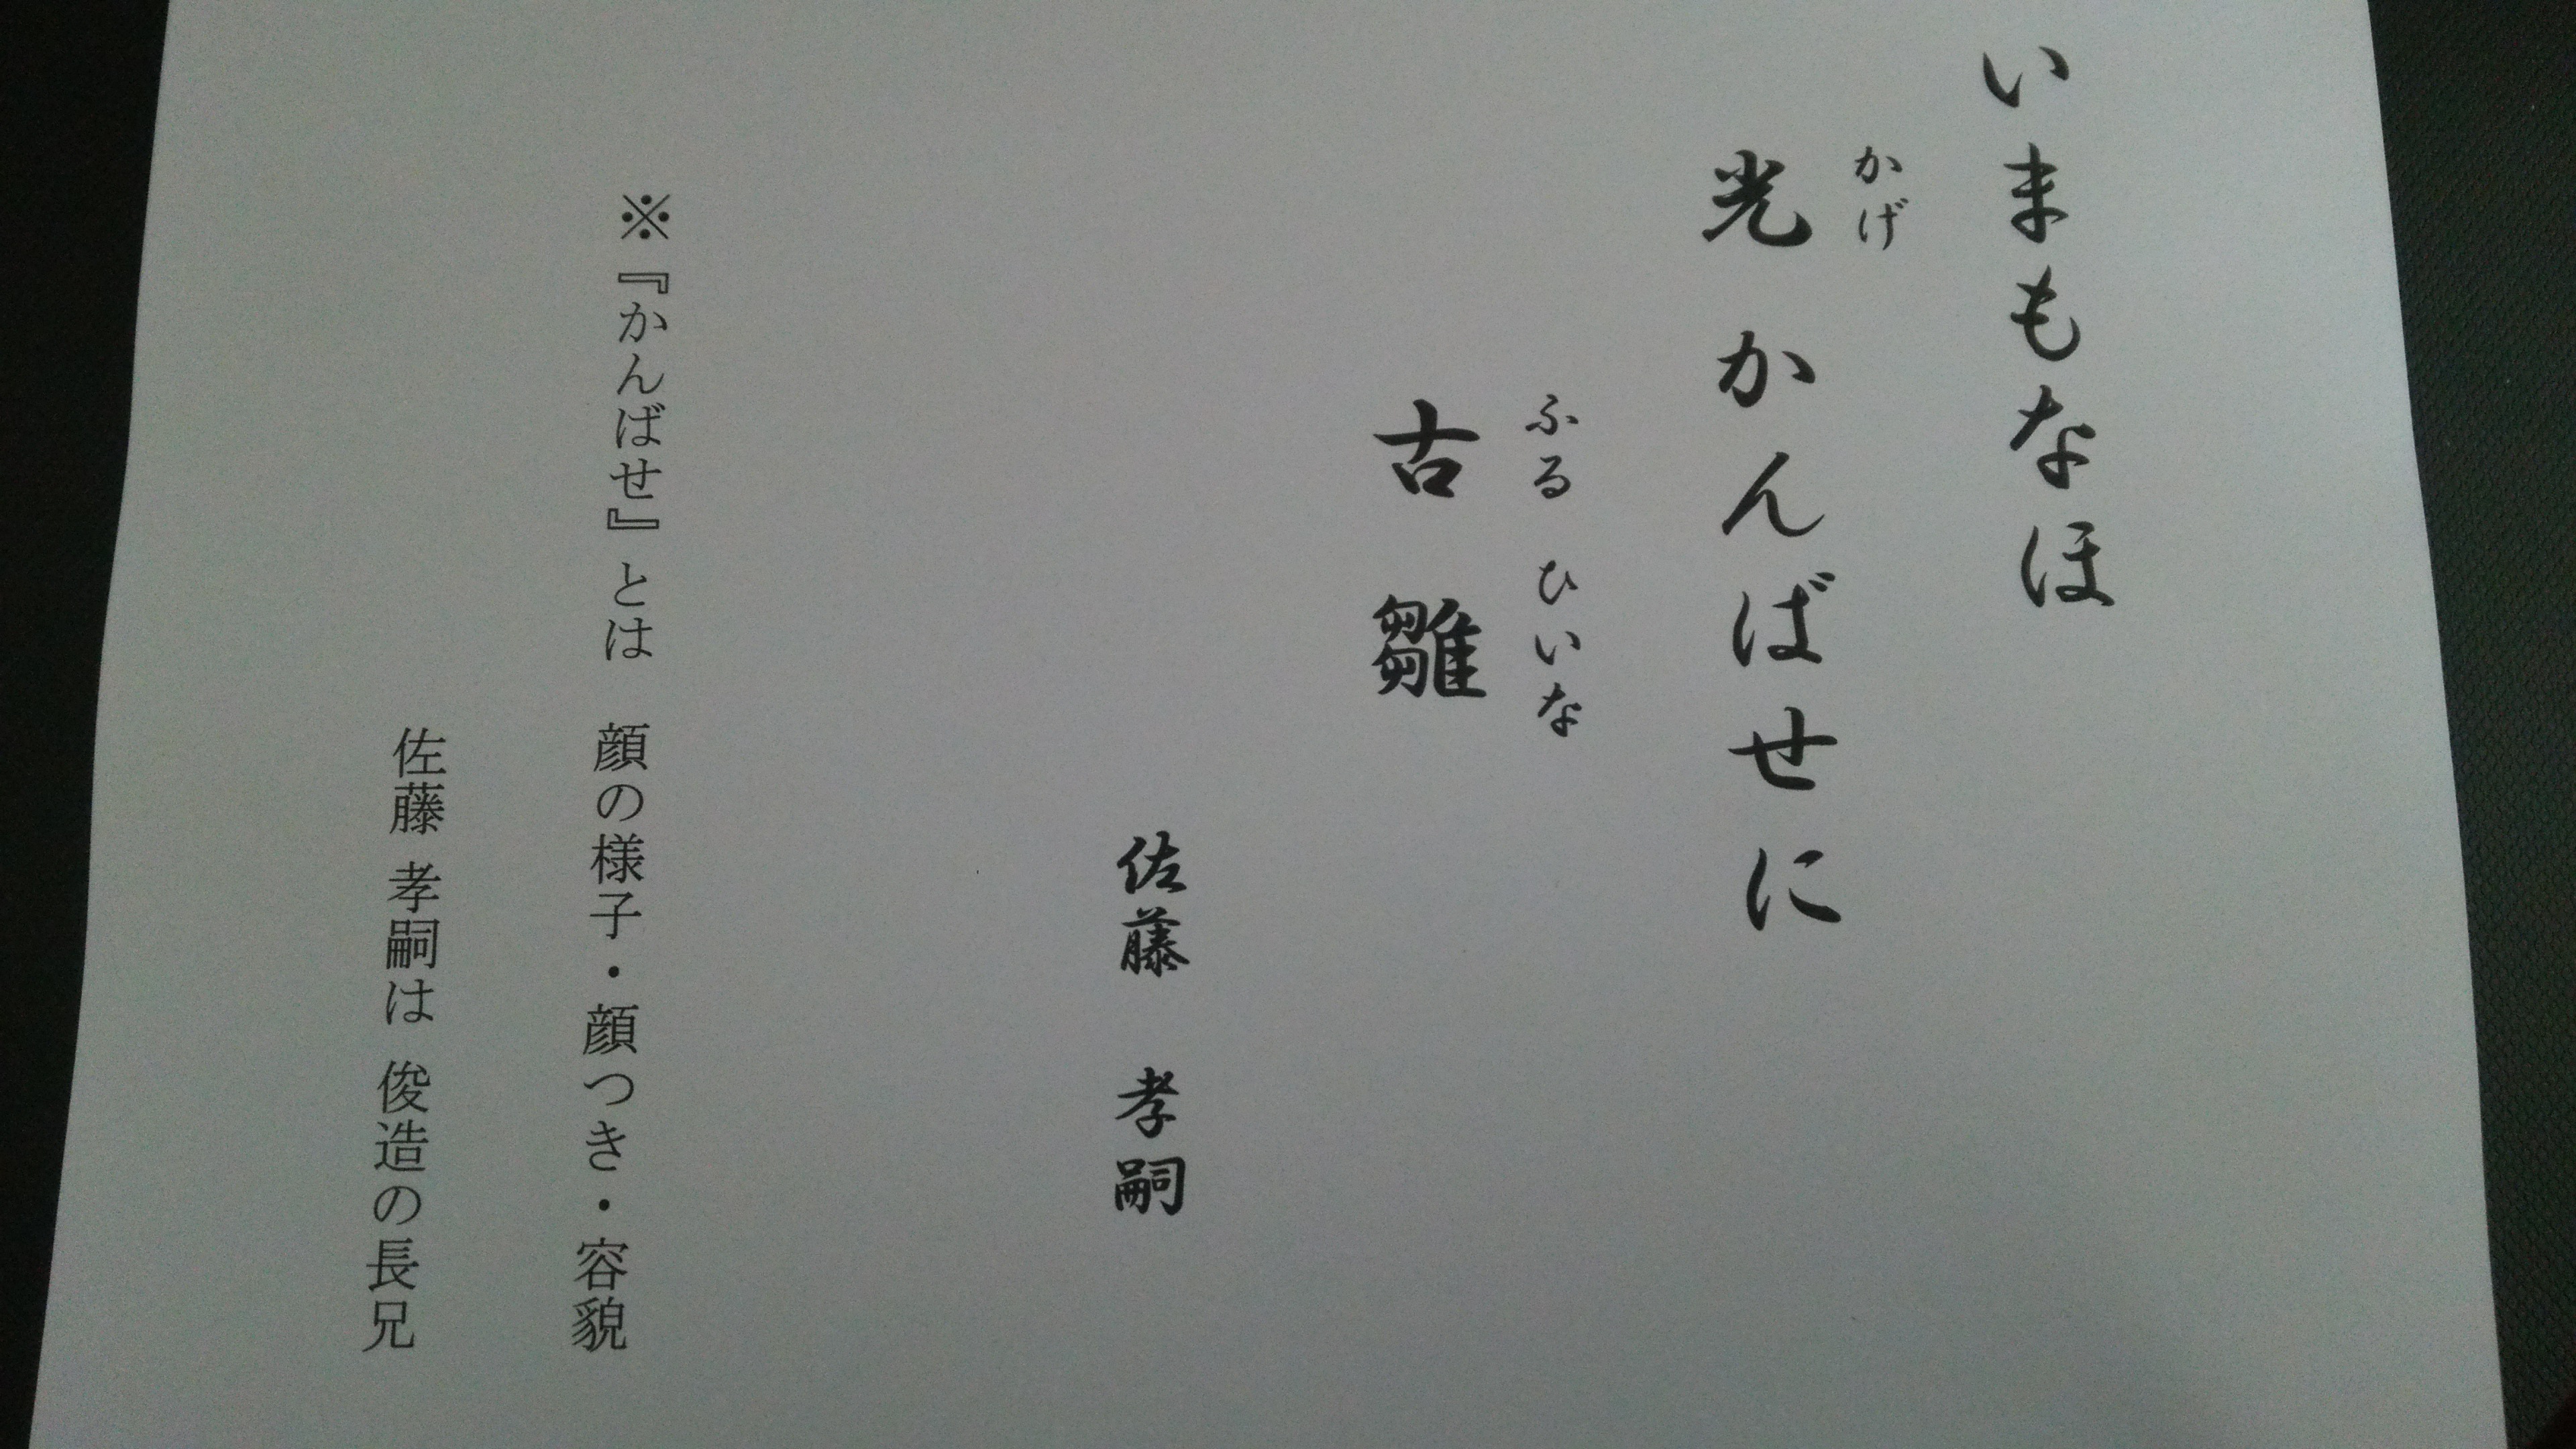 いまもなほ
かげ
光かんばせに
ふる ひいな
古 雛
佐藤 孝嗣
※『かんばせ』とは 顔の様子・顔つき・容貌
佐藤 孝嗣は 俊造の長兄